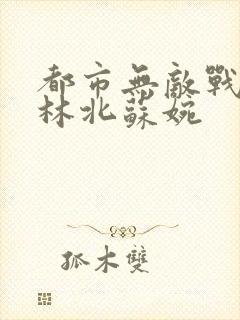 都市無敵戰
林北蘇婉
孤木雙